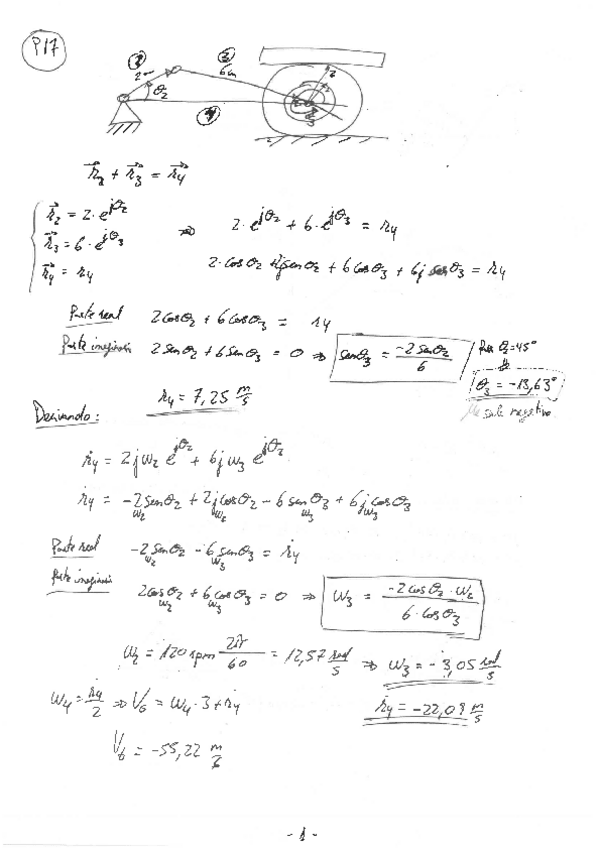 P17
2
3
2 m
6 m
θ₂
4
r⃗₂ + r⃗₃ = r⃗₄
r⃗₂ = 2·e^{jθ₂}
r⃗₃ = 6·e^{jθ₃}
r⃗₄ = r₄
⇒ 2·e^{jθ₂} + 6·e^{jθ₃} = r₄
2·cosθ₂ + 2j senθ₂ + 6cosθ₃ + 6j senθ₃ = r₄
Parte real 2cosθ₂ + 6cosθ₃ = r₄
Parte imaginaria 2senθ₂ + 6senθ₃ = 0 ⇒ senθ₃ = -2senθ₂ / 6
Para θ₂=45°
θ₃ = -13,63°
Me sale negativo
r₄ = 7,25 m/s
Derivando:
ṙ₄ = 2jω₂ e^{jθ₂} + 6jω₃ e^{jθ₂}
ṙ₄ = -2senθ₂ω₂ + 2jcosθ₂ω₂ - 6senθ₃ω₃ + 6jcosθ₃ω₃
Parte real -2senθ₂ω₂ - 6senθ₃ω₃ = ṙ₄
Parte imaginaria 2cosθ₂ω₂ + 6cosθ₃ω₃ = 0 ⇒ ω₃ = -2cosθ₂·ω₂ / 6·cosθ₃
ω₂ = 120 rpm 2π/60 = 12,57 rad/s ⇒ ω₃ = -3,05 rad/s
ω₄ = ṙ₄/2 ⇒ V₆ = ω₄·3 + ṙ₄
ṙ₄ = -22,09 m/s
V₆ = -55,22 m/s
- 1 -